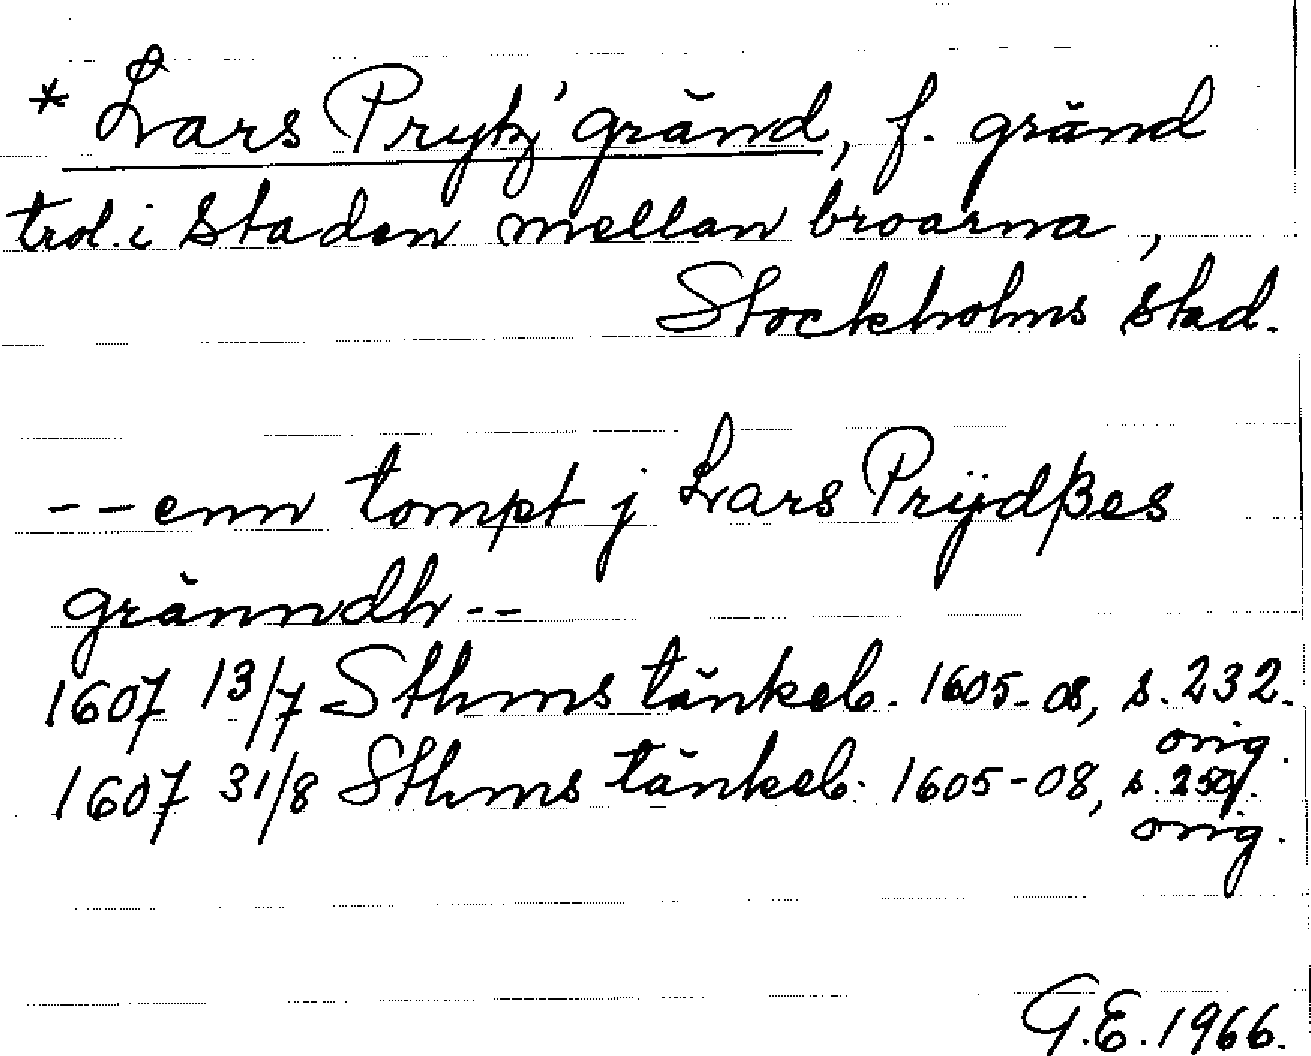 * Lars Prytz' gränd, f. gränd
trol. i Staden mellan broarna,
Stockholms stad.
-- enn tompt j Lars Prÿdßes
gränndh --
1607 13/7 Sthms tänkeb. 1605-08, s. 232.
orig.
1607 31/8 Sthms tänkeb. 1605-08, s. 250f.
orig.
G.E. 1966.